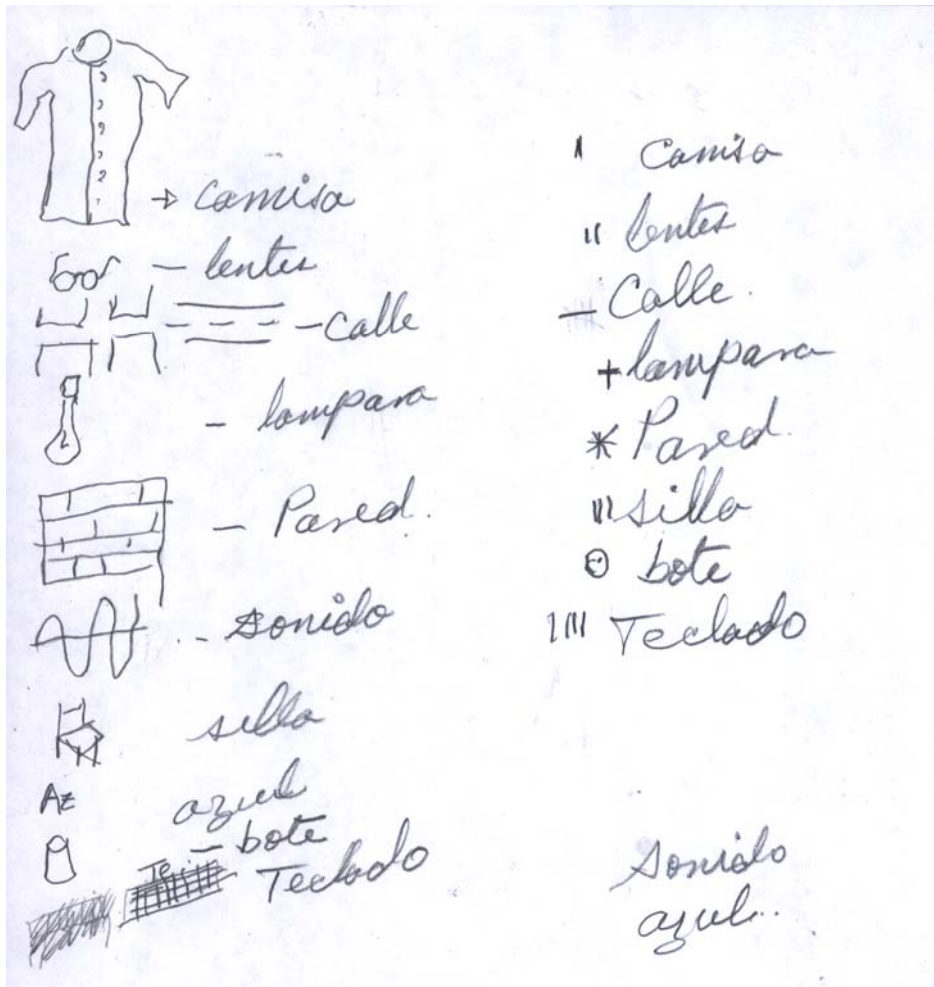 → camisa
– lentes
– calle
– lampara
– Pared.
– sonido
silla
Az azul
– bote
Te – Teclado
ı camisa
ıı lentes
– Calle.
+ lampara
* Pared.
ııı silla
⊙ bote
ıııı Teclado
sonido
azul..